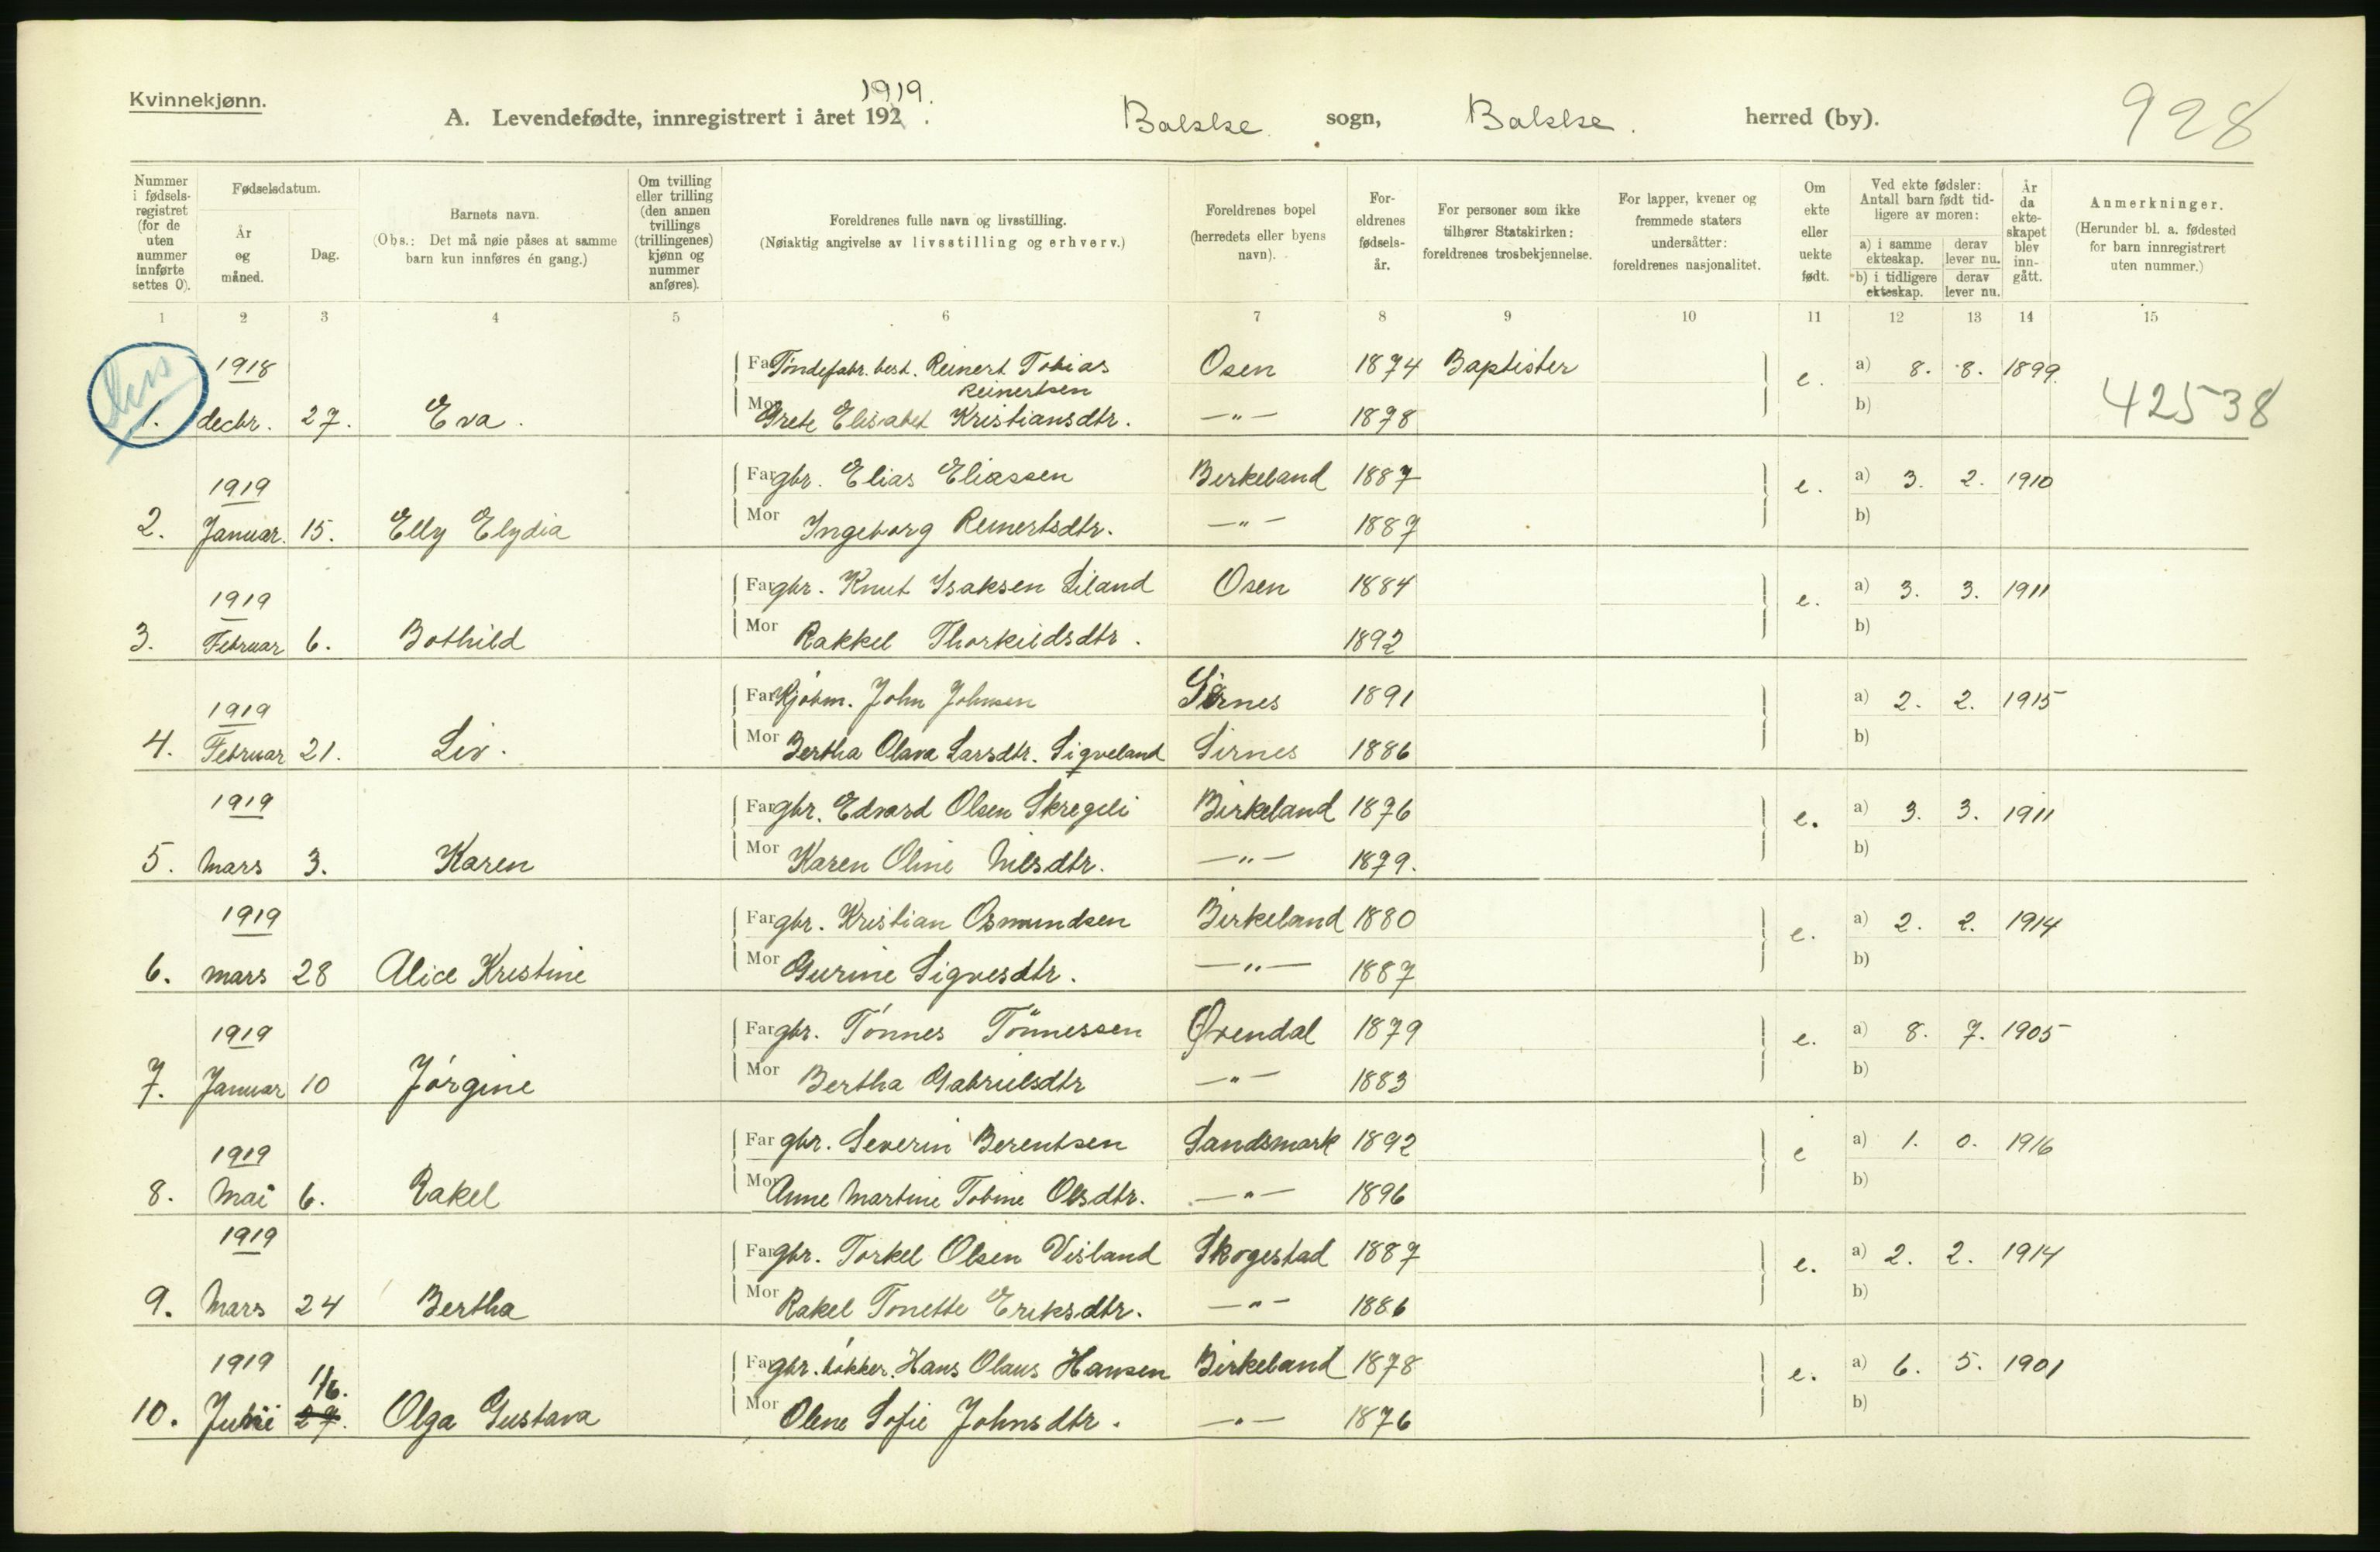 Kvinnekjønn.
1919.
A. Levendefødte, innregistrert i året 192 .
Bakke sogn, Bakke. herred (by).
928
Nummer i fødselsregistret (for de uten nummer innførte settes 0).
Fødselsdatum.
År og måned.
Dag.
Barnets navn.
(Obs.: Det må nøie påses at samme barn kun innføres én gang.)
Om tvilling eller trilling (den annen tvillings (trillingenes) kjønn og nummer anføres).
Foreldrenes fulle navn og livsstilling.
(Nøiaktig angivelse av livsstilling og erhverv.)
Foreldrenes bopel (herredets eller byens navn).
Foreldrenes fødselsår.
For personer som ikke tilhører Statskirken: foreldrenes trosbekjennelse.
For lapper, kvener og fremmede staters undersåtter: foreldrenes nasjonalitet.
Om ekte eller uekte født.
Ved ekte fødsler: Antall barn født tidligere av moren:
a) i samme ekteskap. derav lever nu.
b) i tidligere ekteskap. derav lever nu.
År da ekteskapet blev inngått.
Anmerkninger.
(Herunder bl. a. fødested for barn innregistrert uten nummer.)
1 2 3 4 5 6 7 8 9 10 11 12 13 14 15
1918
Far Tøndefabr. best. Reinert Tobias Osen 1874 Baptister e. a) 8. 8. 1899.
Reinertsen
1. decbr. 27. Eva. Mor Grete Elisabet Kristiansdtr. —"— 1878 b) 42538
1919
Far gbr. Elias Eliassen Birkeland 1887 e. a) 3. 2. 1910
2. Januar. 15. Elly Elydia Mor Ingeborg Reinertsdtr. —"— 1887 b)
1919
Far gbr. Knut Isaksen Liland Osen 1884 e. a) 3. 3. 1911
3. Februar 6. Bothild Mor Rakkel Thorkildsdtr. 1892 b)
1919
Far Kjøbm. John Johnsen Sirnes 1891 a) 2. 2. 1915
4. Februar 21. Liv. Mor Bertha Olava Larsdtr. Sigveland Sirnes 1886 b)
1919
Far gbr. Edvard Olsen Skregeli Birkeland 1876 e. a) 3. 3. 1911
5. Mars 3. Karen Mor Karen Oline Nilsdtr. —"— 1879. b)
1919
Far gbr. Kristian Osmundsen Birkeland 1880 e. a) 2. 2. 1914
6. mars 28 Alice Kristine Mor Gurine Sigvesdtr. —"— 1887 b)
1919
Far gbr. Tónnes Tönnessen Øvendal 1879 e. a) 8. 7. 1905
7. Januar 10 Jórgine Mor Bertha Gabrielsdtr —"— 1883 b)
1919
Far gbr. Severin Berentsen Sandsmark 1892 e a) 1. 0. 1916
8. Mai 6. Rakel Mor Anne Martine Tobine Olsdtr. —"— 1896 b)
1919
Far gbr. Torkel Olsen Visland Skogestad 1887 e. a) 2. 2. 1914
9. Mars 24 Bertha Mor Rakel Tonette Eriksdtr. —"— 1886 b)
1919
Far gbr. bókker. Hans Olaus Hansen Birkeland 1878 e. a) 6. 5. 1901
16.
10. Juni 27. Olga Gustava Mor Olene Sofie Johnsdtr. —"— 1876 b)